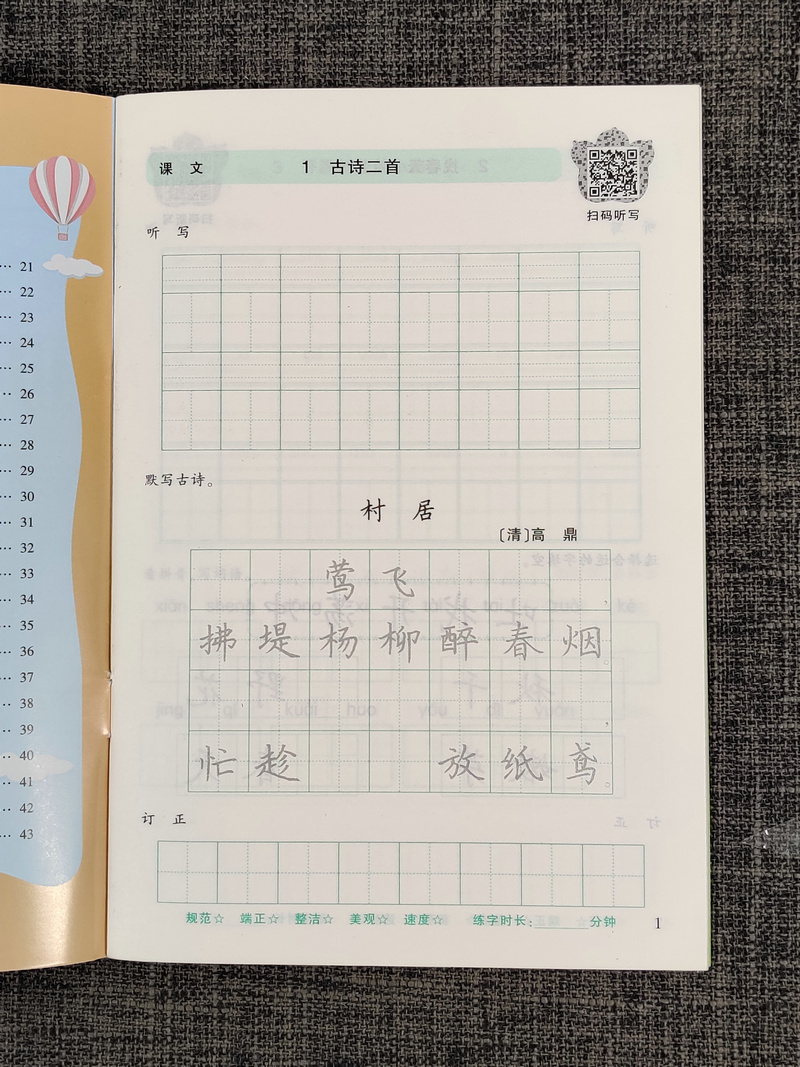 21
22
23
24
25
26
27
28
29
30
31
32
33
34
35
36
37
38
39
40
41
42
43
课 文 1 古诗二首
扫码听写
听 写
默写古诗。
村 居
〔清〕高 鼎
莺飞
拂堤杨柳醉春烟
忙趁 放纸鸢。
订 正
规范☆ 端正☆ 整洁☆ 美观☆ 速度☆ 练字时长:______分钟
1